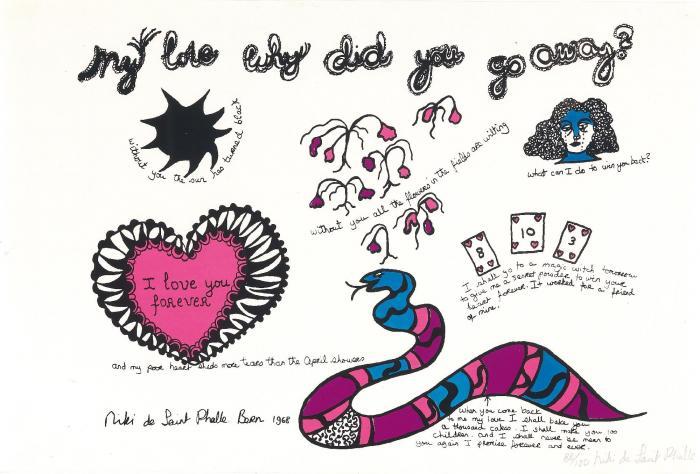 my love why did you go away?
without you the sun has turned black
without you all the flowers in the fields are wilting
what can I do to win you back?
I love you
forever
8
10
3
I shall go to a magic witch tomorrow
to give me a secret powder to win your
heart forever. It worked for a friend
of mine.
and my poor heart sheds more tears than the April showers
Niki de Saint Phalle Bern 1968
When you come back
to me my love I shall bake you
a thousand cakes. I shall make you 100
children. and I shall never be mean to
you again I promise forever and ever.
/100 Niki de Saint Phalle